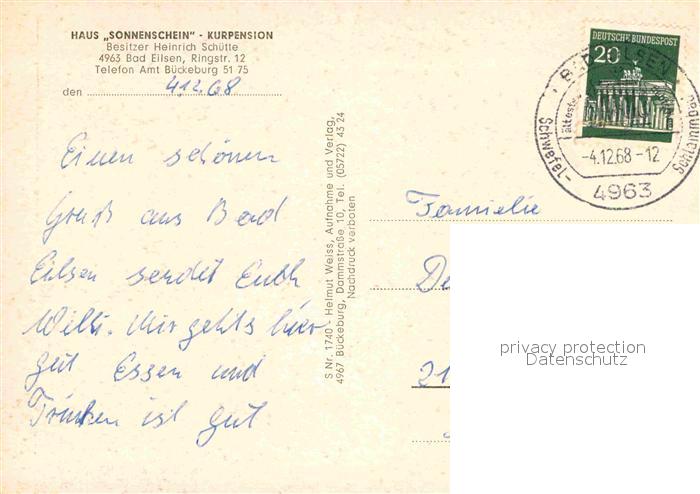 HAUS „SONNENSCHEIN" - KURPENSION
Besitzer Heinrich Schütte
4963 Bad Eilsen, Ringstr. 12
Telefon Amt Bückeburg 51 75
den 4.12.68
Einen schönen
Gruß aus Bad
Eilsen sendet Euch
Willi. Mir gehts hier
gut Essen und
Trinken ist gut
S Nr. 1740 - Helmut Weiss, Aufnahme und Verlag,
4967 Bückeburg, Dammstraße 10, Tel. (05722) 43 24
Nachdruck verboten
DEUTSCHE BUNDESPOST
20
BAD EILSEN
ältestes
Schwefel-
Schlammbad
-4.12.68-12
4963
Familie
De
21
privacy protection
Datenschutz